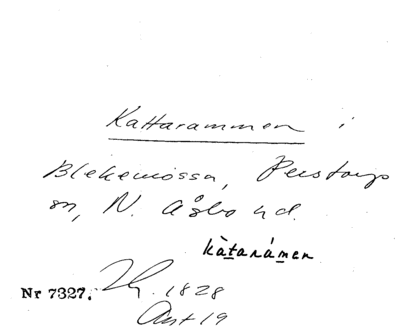 Kattarammen i
Blekemossa, Perstorps
sn, N. Åsbo hd.
kàtarámen
Nr 7327. 1828
Ant 19